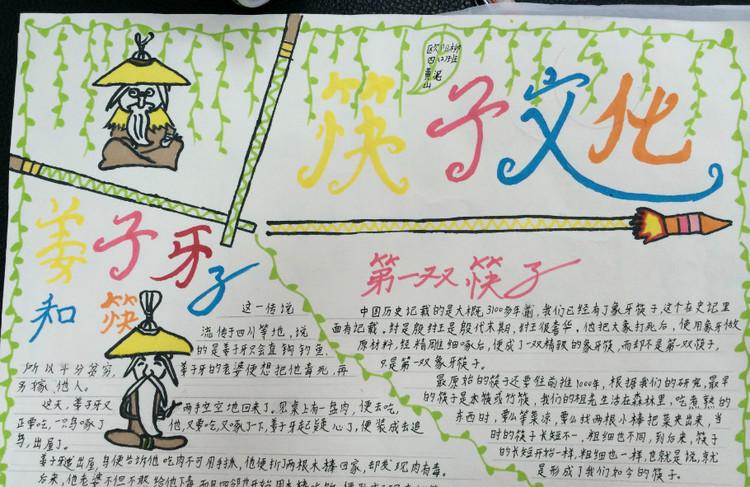 筷子文化
四(2)班
姜子牙
和筷子
这一传说
流传于四川等地,说
的是姜子牙只会直钩钓鱼,
所以十分贫穷,姜子牙的老婆便想把他害死,再
另嫁他人。
这天,姜子牙又两手空空地回来了。见桌上有一盘肉,便去吃,
正要吃,一只鸟啄了他,又要吃,又啄了一下,姜子牙起疑心了,便装成去追
鸟,出屋了。
姜子牙追出屋,鸟便告诉他吃肉不可用手抓,他便折了两根木棒回家,却发现肉有毒。
第一双筷子
中国历史记载的是大概3100多年前,我们已经有了象牙筷子,这个在史记里
面有记载。纣是殷纣王是殷代末期,纣王很奢华,他把大象打死后,使用象牙做
原材料,经精雕细啄后,便成了一双精致的象牙筷,而却不是第一双筷子,
只是第一双象牙筷子。
最原始的筷子还要往前推1000年,根据我们的研究,最早
的筷子是木筷或竹筷,我们的祖先生活在森林里,吃煮熟的
东西时,要么等菜凉,要么找两根小棒把菜夹出来,当
时的筷子长短不一,粗细也不同,到后来,筷子
的长短开始一样,粗细也一样,也就是说,就
是形成了我们如今的筷子。